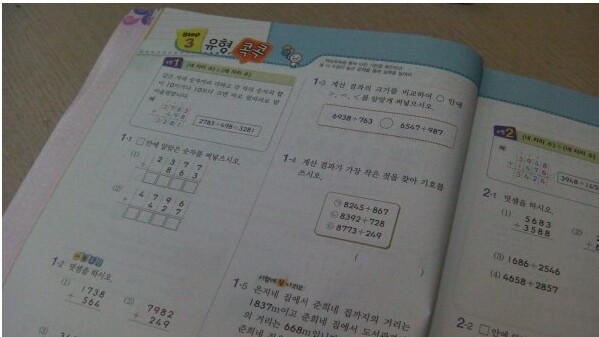 STEP 3 유형 콕콕
유형 1 (네 자리 수)+(세 자리 수)
같은 자리 숫자끼리 더하고 각 자리 숫자의 합
이 10이거나 10보다 크면 바로 윗자리로 받
아올림합니다.
예
2783
+ 498
3281
2783+498=3281
1-1 □안에 알맞은 숫자를 써넣으시오.
(1)
2377
+ 863
(2)
4796
+ 427
1-2 덧셈을 하시오.
(1)
1738
+ 564
(2)
7982
+ 249
(3)
1-3 계산 결과의 크기를 비교하여 ○ 안에
>, =, <를 알맞게 써넣으시오.
6938+763 ○ 6547+987
1-4 계산 결과가 가장 작은 것을 찾아 기호를
쓰시오.
㉠ 8245+867
㉡ 8392+728
㉢ 8773+249
( )
1-5 은지네 집에서 준희네 집까지의 거리는
1837m이고 준희네 집에서 도서관까지
의 거리는 668m입니다
준희네
유형 2 (네 자리 수)+(네 자리 수)
예
3948
+1476
5424
3948+1476
2-1 덧셈을 하시오.
(1)
5683
+3588
(2)
(3) 1686+2546
(4) 4658+2857
2-2 □안에